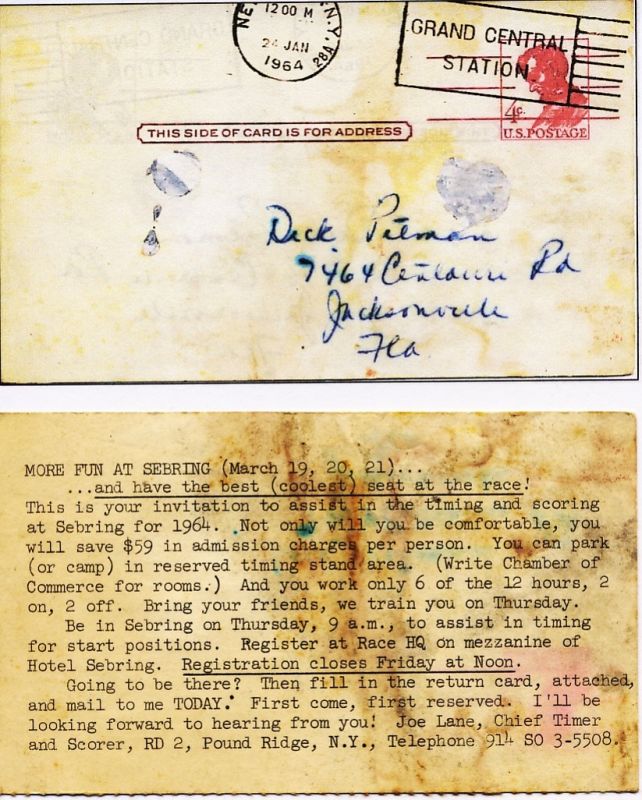 12 00 M
N.Y.
NE
24 JAN
1964
28A
GRAND CENTRAL
STATION
4c.
U.S. POSTAGE
THIS SIDE OF CARD IS FOR ADDRESS
Dick Pitman
7464 Centauri Rd
Jacksonville
Fla
MORE FUN AT SEBRING (March 19, 20, 21)...
...and have the best (coolest) seat at the race!
This is your invitation to assist in the timing and scoring
at Sebring for 1964. Not only will you be comfortable, you
will save $59 in admission charges per person. You can park
(or camp) in reserved timing stand area. (Write Chamber of
Commerce for rooms.) And you work only 6 of the 12 hours, 2
on, 2 off. Bring your friends, we train you on Thursday.
Be in Sebring on Thursday, 9 a.m., to assist in timing
for start positions. Register at Race HQ on mezzanine of
Hotel Sebring. Registration closes Friday at Noon.
Going to be there? Then fill in the return card, attached,
and mail to me TODAY. First come, first reserved. I'll be
looking forward to hearing from you! Joe Lane, Chief Timer
and Scorer, RD 2, Pound Ridge, N.Y., Telephone 914 SO 3-5508.